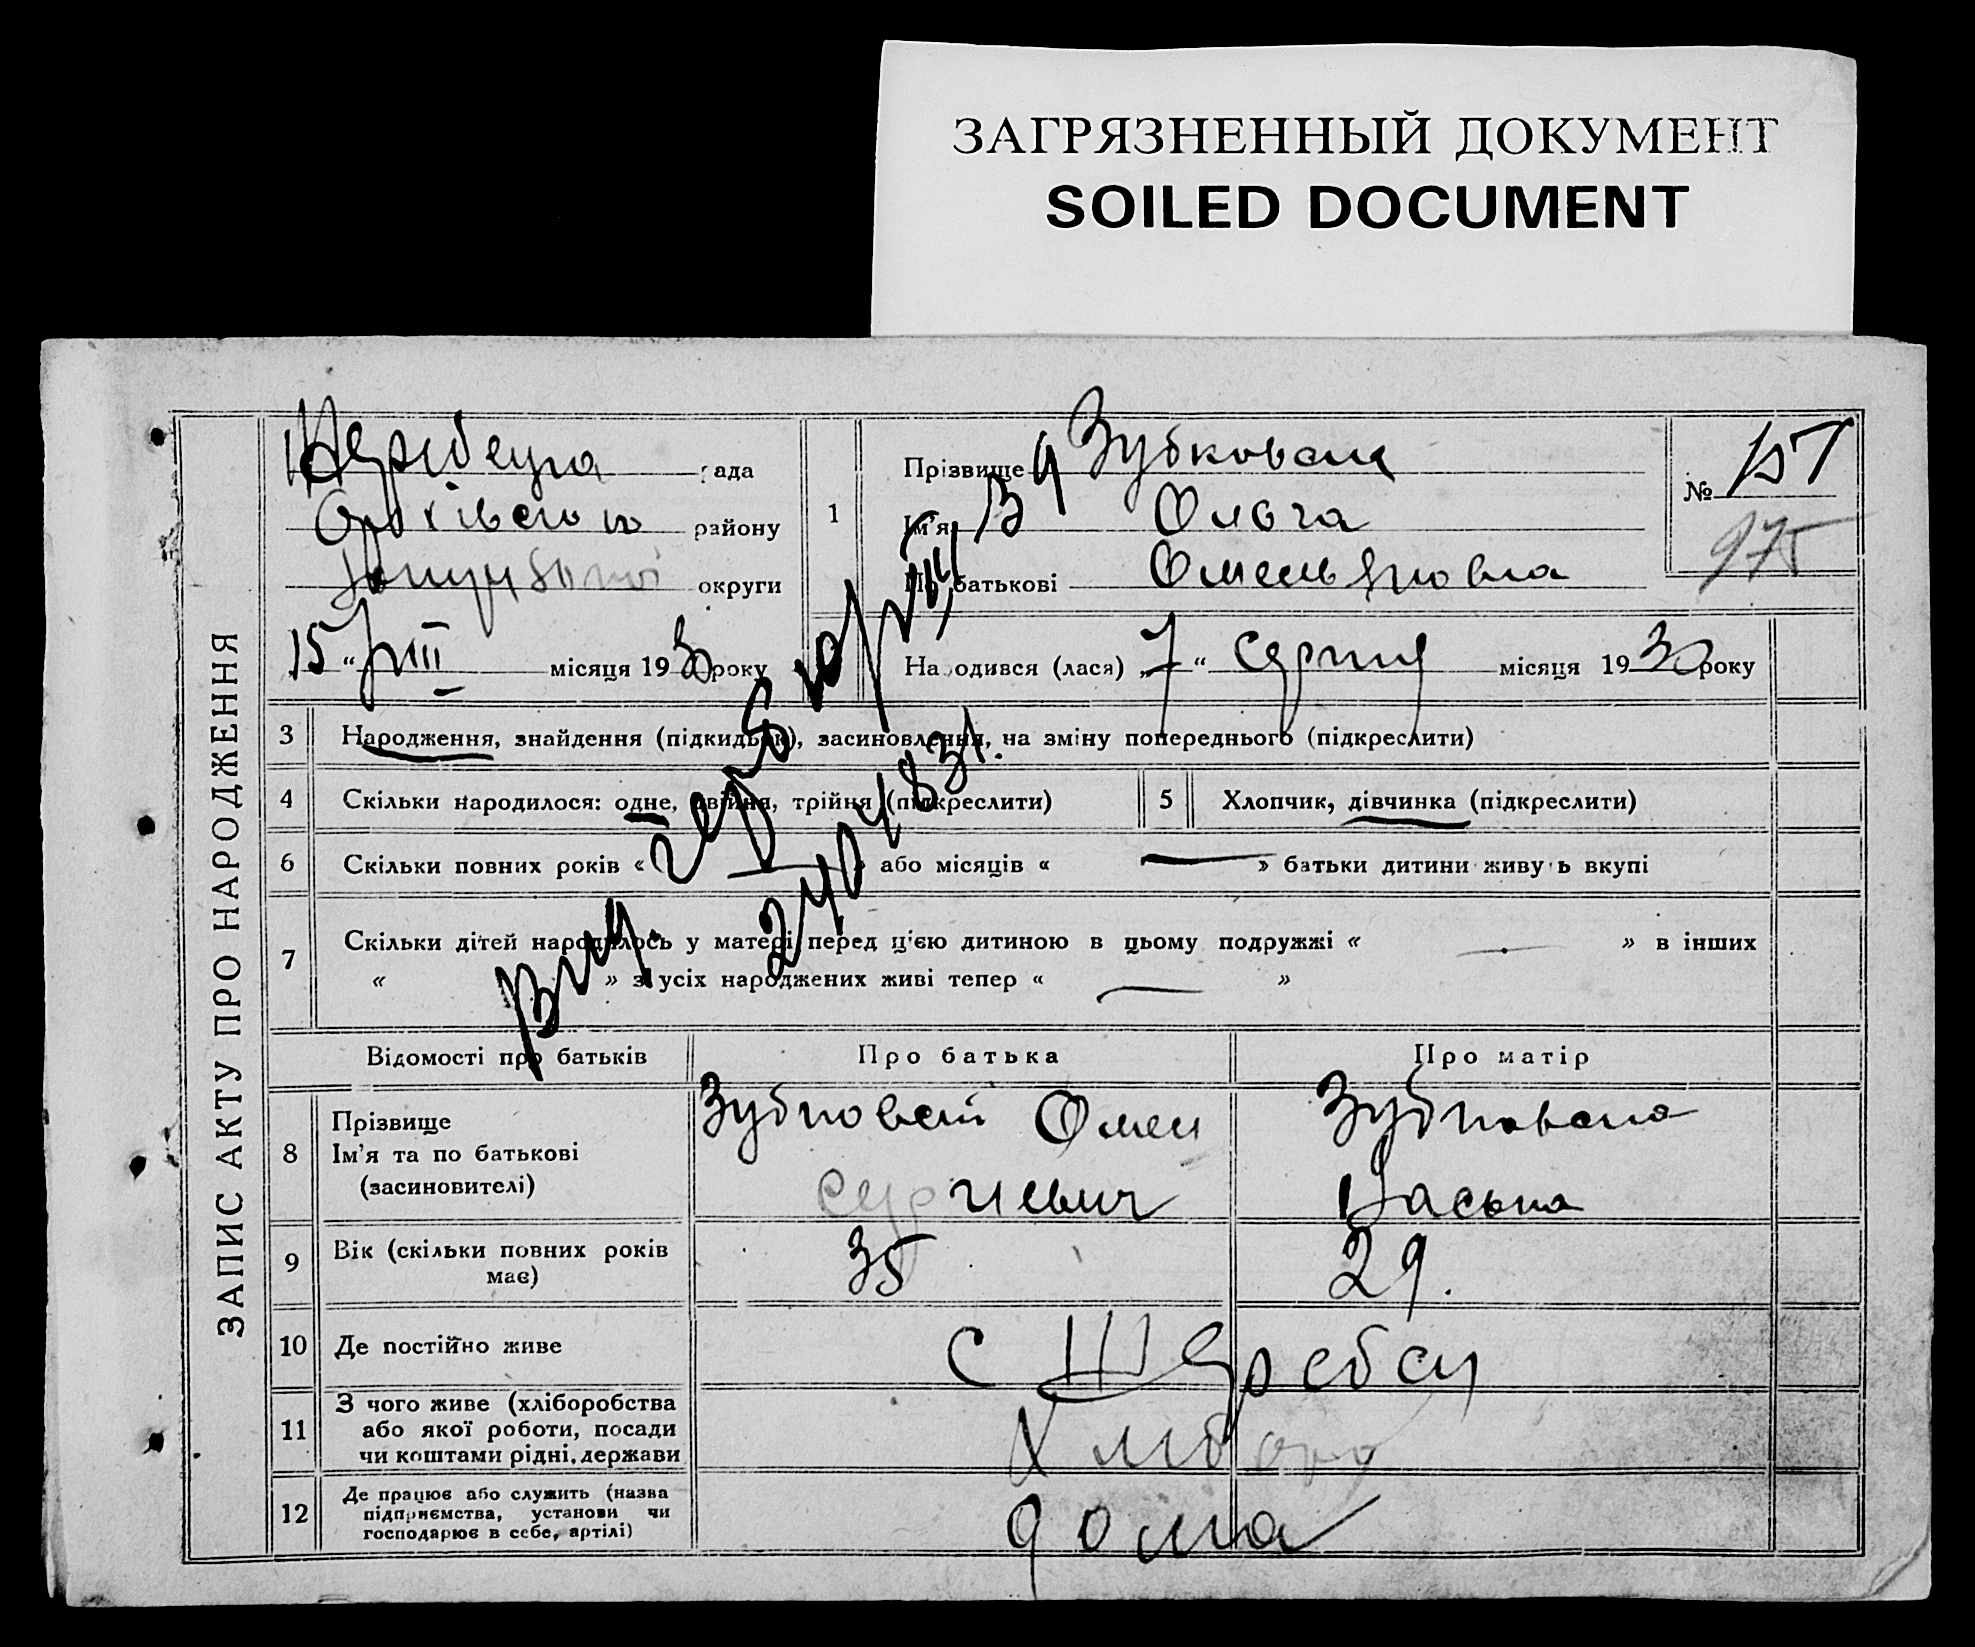 ЗАГРЯЗНЕННЫЙ ДОКУМЕНТ
SOILED DOCUMENT
ЗАПИС АКТУ ПРО НАРОДЖЕННЯ
рада
району
округи
15 " VIII місяця 1930 року
1
Прізвище Зубковска
Ім'я Ольга
По батькові Омельяновна
№ 157
975
Народився (лася) „7 " серпня місяця 1930 року
3 Народження, знайдення (підкидьок), засиновлення, на зміну попереднього (підкреслити)
4 Скільки народилося: одне, двійня, трійня (підкреслити)
5 Хлопчик, дівчинка (підкреслити)
6 Скільки повних років « — » або місяців « — » батьки дитини живуть вкупі
7 Скільки дітей народилось у матері перед цією дитиною в цьому подружжі « — » в інших
« » з усіх народжених живі тепер « — »
Відомості про батьків
Про батька
Про матір
8 Прізвище
Ім'я та по батькові
(засновителі)
Зубковский Омел
Сергиевич
Зубковска
Васьна
9 Вік (скільки повних років
має)
35
29.
10 Де постійно живе
с
11 З чого живе (хліборобства
або якої роботи, посади
чи коштами рідні, держави
12 Де працює або служить (назва
підприємства, установи чи
господарює в себе, артілі)
дома